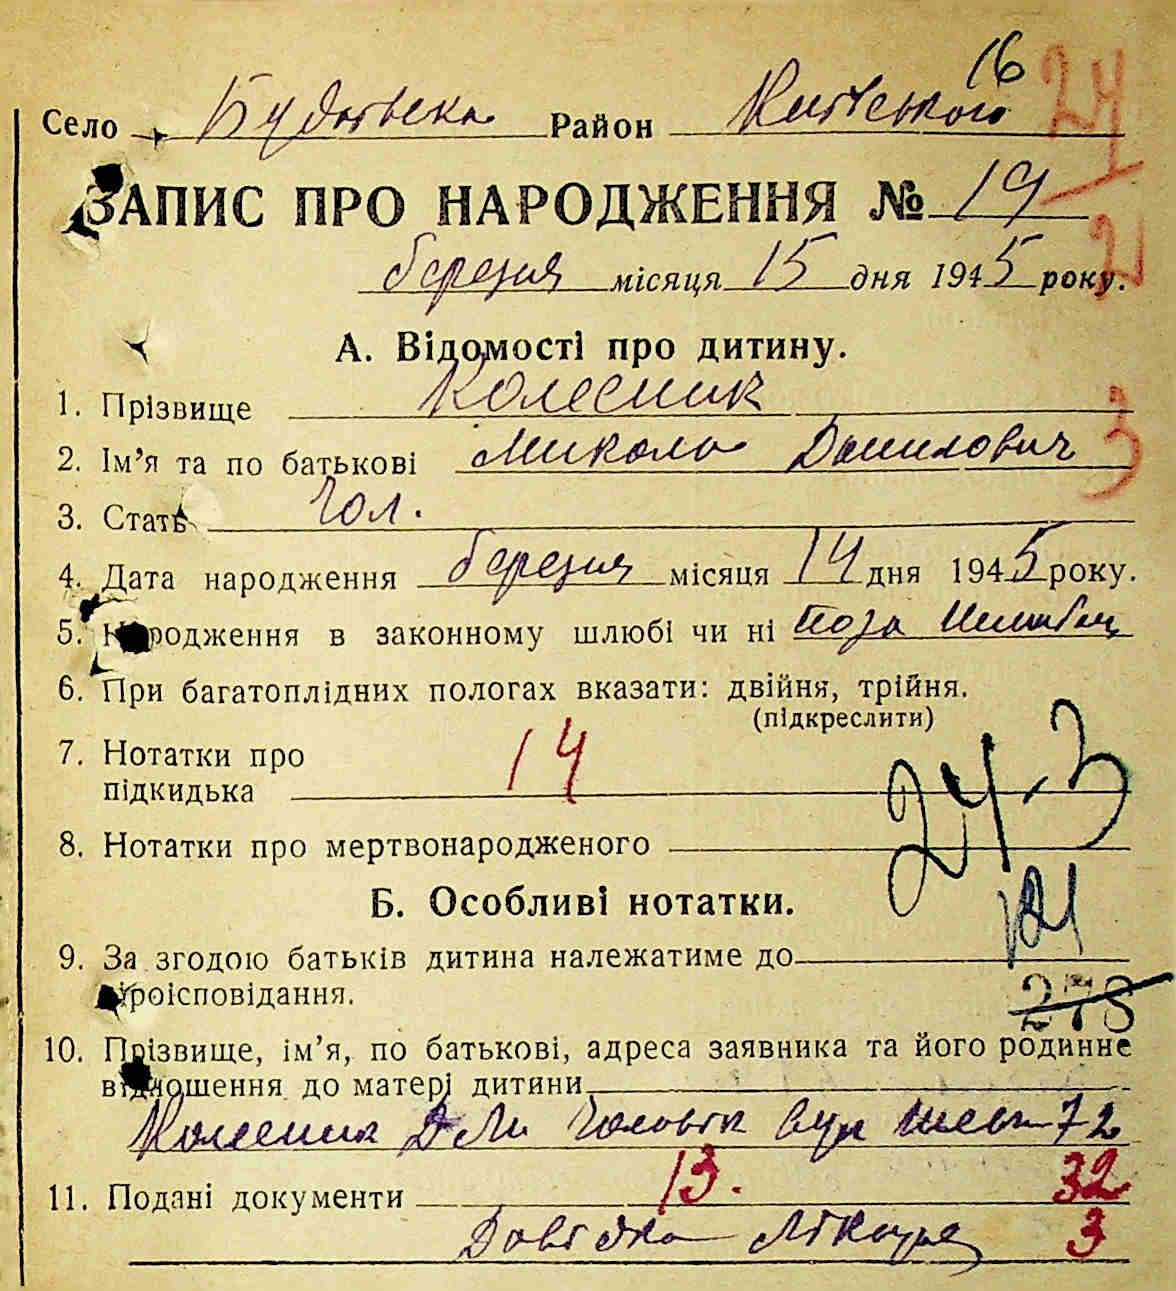 16
24
Село Будаївка Район Київського
ЗАПИС ПРО НАРОДЖЕННЯ № 19
2
березня місяця 15 дня 1945 року.
А. Відомості про дитину.
1. Прізвище Колесник
2. Ім'я та по батькові Микола Данилович
3
3. Стать Чол.
4. Дата народження березня місяця 14 дня 1945 року.
5. Народження в законному шлюбі чи ні поза
6. При багатоплідних пологах вказати: двійня, трійня.
(підкреслити)
7. Нотатки про 14
підкидька
24-3
8. Нотатки про мертвонародженого
Б. Особливі нотатки.
9. За згодою батьків дитина належатиме до
віроісповідання.
278
10. Прізвище, ім'я, по батькові, адреса заявника та його родинне
відношення до матері дитини
Колесник Д Ми Чоловік вул 72
11. Подані документи 13. 32
Довідка Лікаря 3